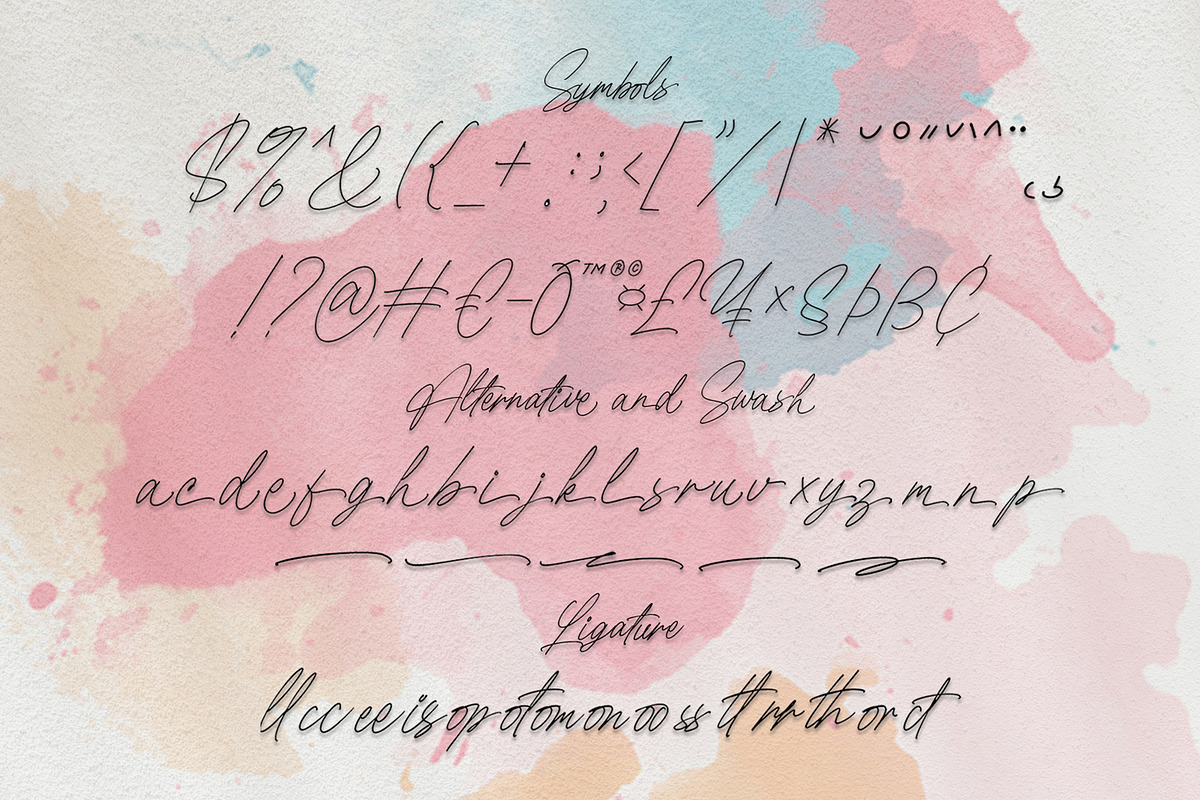 Symbols
$%^&({_+.:;<[”/|*˘°˝ˇ`^¨¸
!?@#€-õ™®©¤£¥×§þß¢
Alternative and Swash
acdefghbijklsruvxyzmnp
Ligature
llcceeisopotomonoossttrrthorct